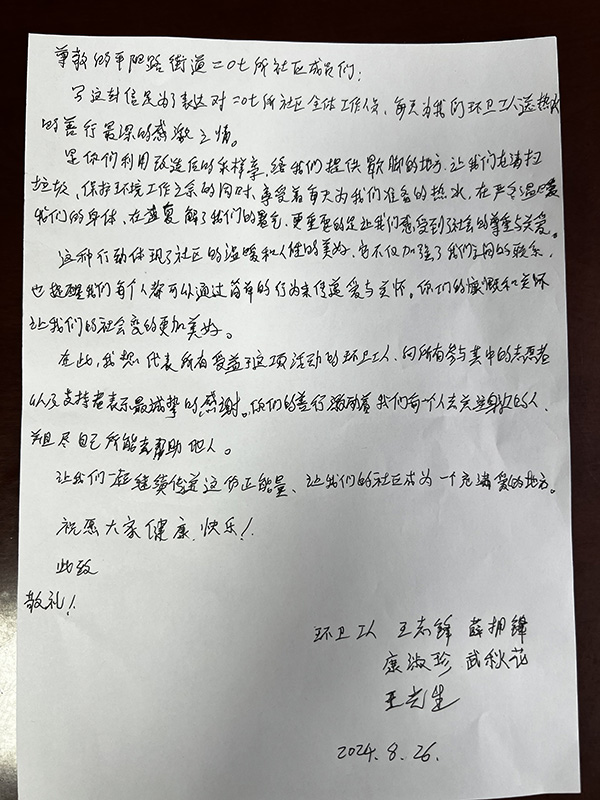 尊敬的平阳路街道二0七所社区成员们:
写这封信是为了表达对二0七所社区全体工作人员,每天为我们环卫工人送热水
的善行最深的感激之情。
是你们利用改造后的采样亭,给我们提供歇脚的地方,让我们在清扫
垃圾、保护环境工作之余的同时,享受着每天为我们准备的热水,在严冬温暖
我们的身体,在盛夏解了我们的暑气,更重要的是让我们感受到了社会的尊重与关爱。
这种行动体现了社区的温暖和人性的美好,它不仅加强了我们之间的联系,
也提醒我们每个人都可以通过简单的行为来传递爱与关怀。你们的慷慨和关怀
让我们的社会变的更加美好。
在此,我想代表所有受益于这项活动的环卫工人,向所有参与其中的志愿者
以及支持者表示最诚挚的感谢。你们的善行激励着我们每一个人去关注身边的人,
并且尽自己所能去帮助他人。
让我们一起继续传递这份正能量、让我们的社区成为一个充满爱的地方。
祝愿大家健康、快乐!
此致
敬礼!
环卫工人 王志锋 薛拥锋
康淑珍 武秋花
王先生
2024.8.26.